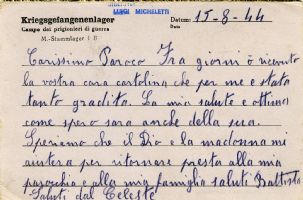 LUIGI MICHELETTI
Kriegsgefangenenlager
Campo dei prigionieri di guerra
M.-Stammlager I B
Datum: 15-8-44
Data
Carissimo Paroco Fra giorni ò ricevuto
la vostra cara cartolina che per me e stata
tanto gradita. La mia salute e ottima
come spero sara anche della sua.
Speriamo che il Dio e la madonna mi
aiutera per ritornare presta alla mia
parochia e alla mia famiglia saluti Battista
Saluti dal Celeste